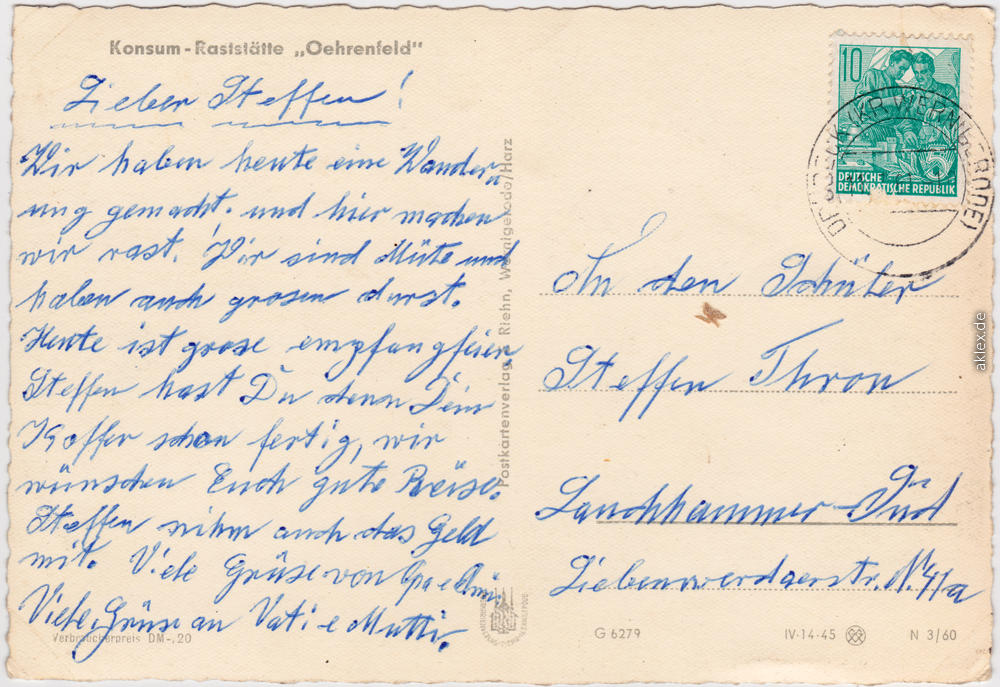 Konsum-Raststätte „Oehrenfeld"
Lieber Steffen!
Wir haben heute eine Wander
ung gemacht. und hier machen
wir rast. Wir sind Müte und
haben auch grosen durst.
Heute ist grose empfangfeier
Steffen hast Du denn Dein
Koffer schon fertig, wir
wünschen Euch gute Reise.
Steffen nihm auch das Geld
mit. Viele Grüse von Opa e Omi.
Viele Grüse an Vati e Mutti.
Verbraucherpreis DM -,20
Postkartenverlag Riehn, Wernigerode/Harz
10
DEUTSCHE
DEMOKRATISCHE REPUBLIK
(KR WERNIGERODE)
An den Schüler
Steffen Thron
Lauchhammer-Süd
Liebenwerdaerstr. N 41a
G 6279
IV-14-45
N 3/60
aklex.de